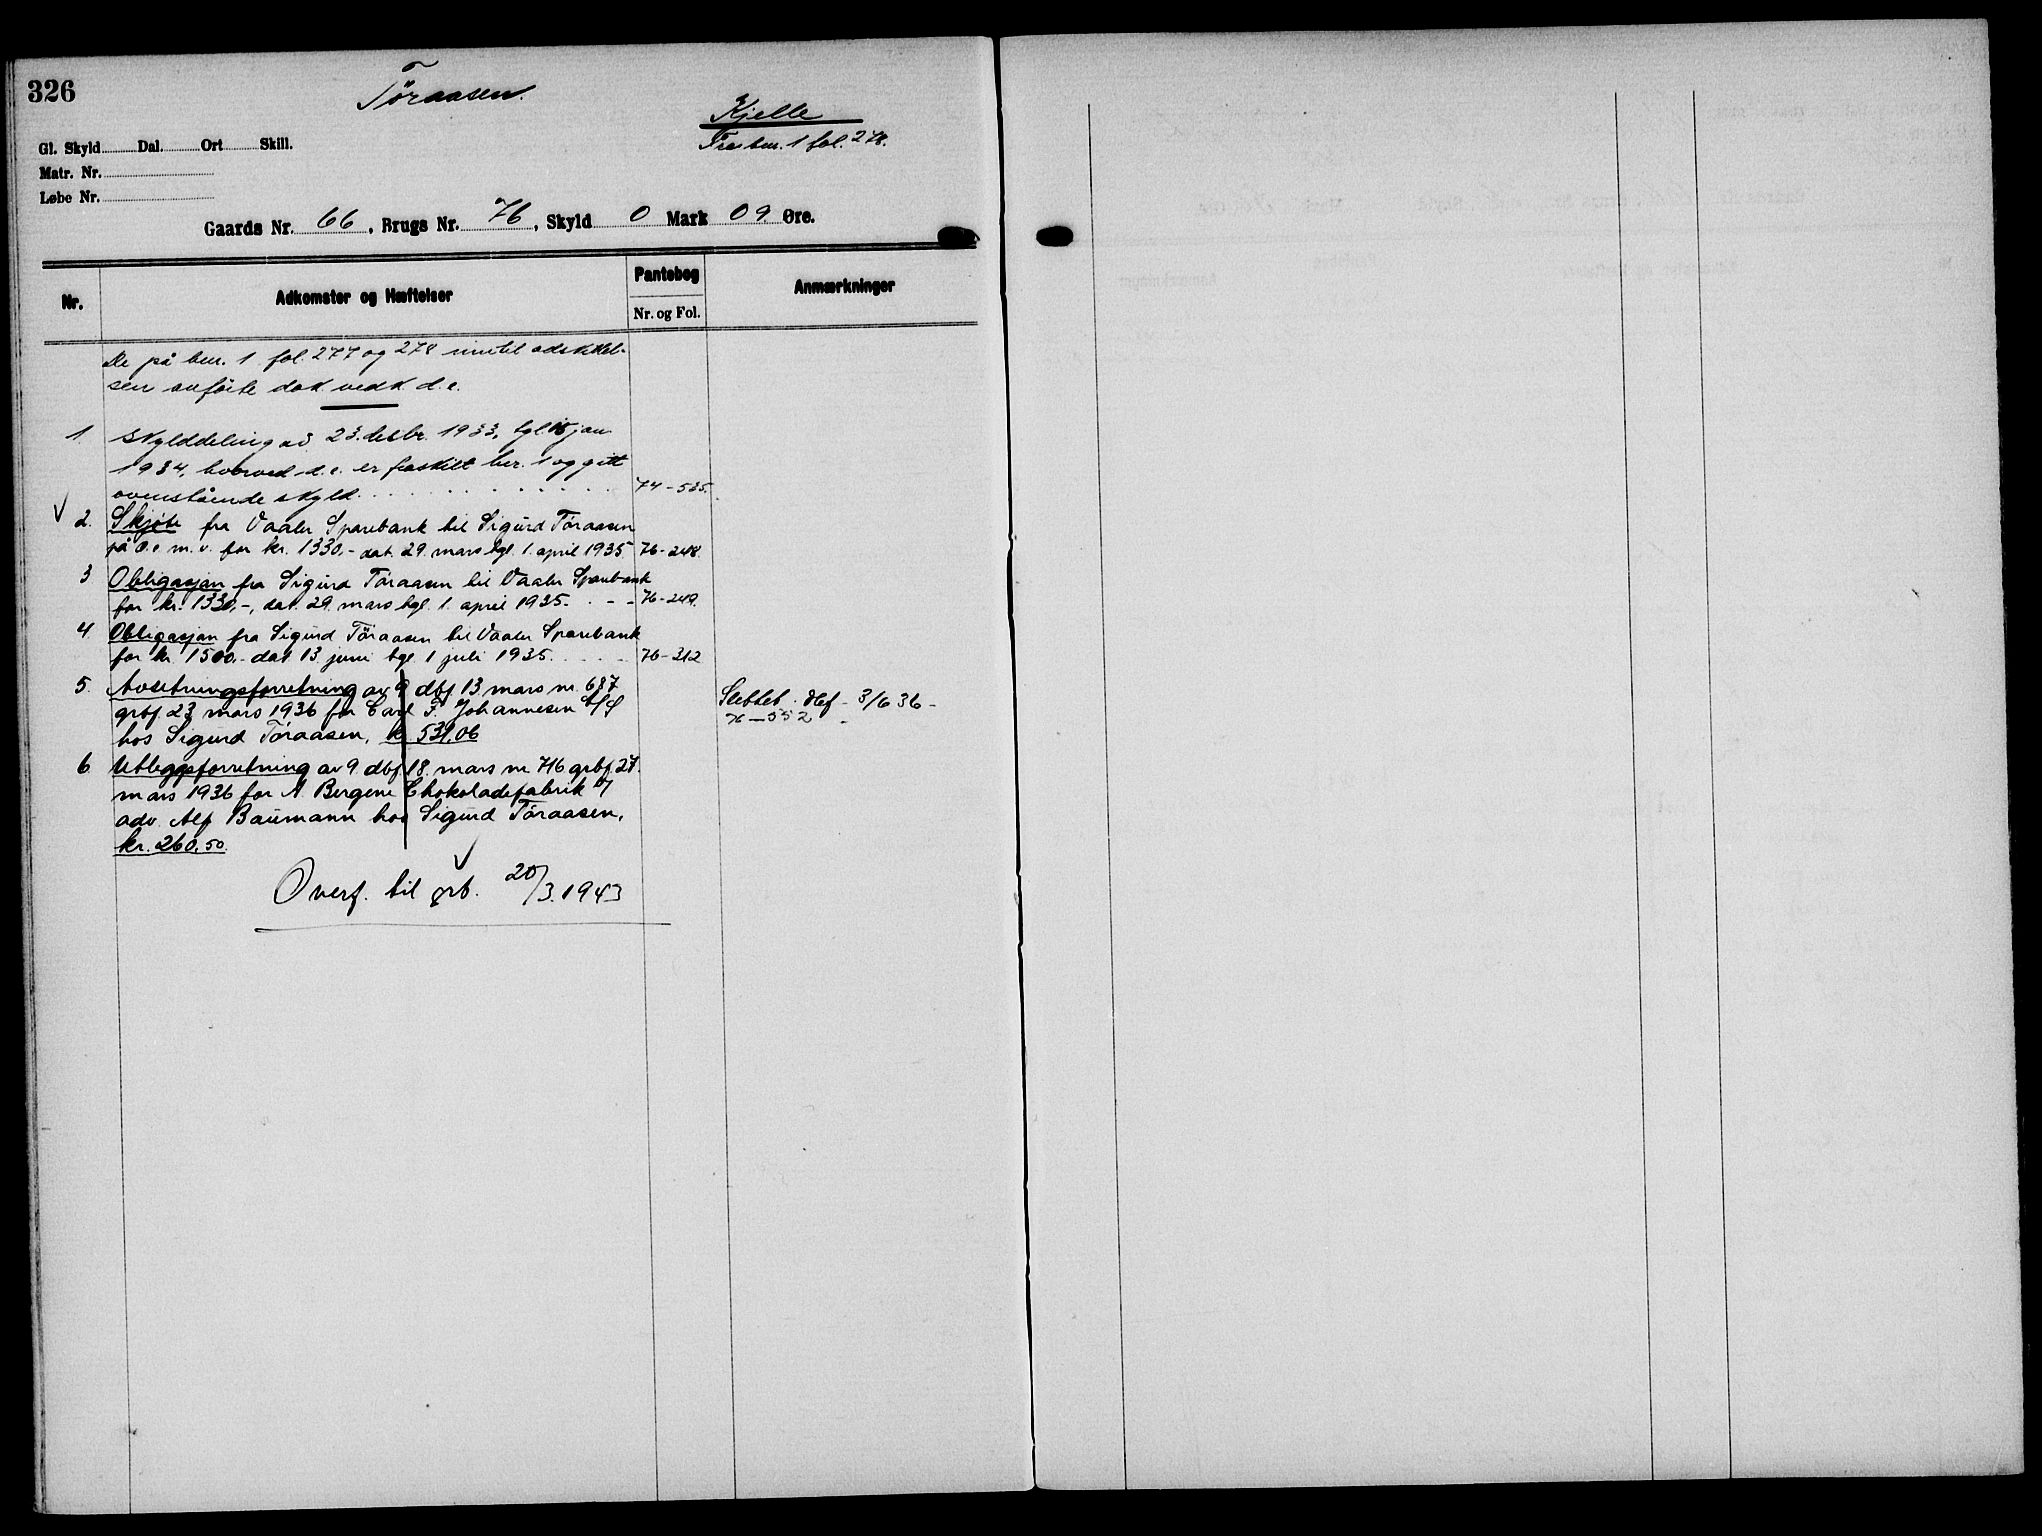 326
Töraasen.
Kjelle
Fra bnr. 1 fol. 278.
Gl. Skyld Dal. Ort Skill.
Matr. Nr.
Løbe Nr.
Gaards Nr. 66, Brugs Nr. 76, Skyld 0 Mark 09. Øre.
Nr. Adkomster og Hæftelser Pantebog Anmærkninger
Nr. og Fol.
De på bnr. 1 fol. 277 og 278 inntil adskillel-
sen anførte dok. vedk. d.e.
1. Skylddeling av 23. desbr. 1933, tgl. 15 jan.
1934, hvorved d.e. er fraskilt bnr. 1 og gitt
ovenstående skyld. 74-535.
2. Skjøte fra Vaaler Sparebank til Sigurd Töraasen
på d.e. m.v. for kr. 1330.- dat. 29. mars tgl. 1. april 1935 76-248.
3 Obligasjon fra Sigurd Töraasen til Vaaler Sparebank
for kr. 1330.-, dat. 29. mars tgl. 1. april 1935. 76-249.
4. Obligasjon fra Sigurd Töraasen til Vaaler Sparebank
for kr. 1500.- dat 13 juni tgl 1 juli 1935. 76-312
5. Avsetningsforretning av 9. dbf. 13. mars nr. 687
grbf. 23 mars 1936 for Carl F. Johannesen A/S
hos Sigurd Töraasen, kr. 531,06
Slettet. dbf - 3/6 36 -
76-552 -
6. Utleggsforretning av 9. dbf. 18. mars nr. 716 grbf. 27.
mars 1936 for N. Bergene Chokoladefabrik v/
adv. Alf Baumann hos Sigurd Töraasen,
kr. 260,50.
Overf. til grb. 20/3.1943